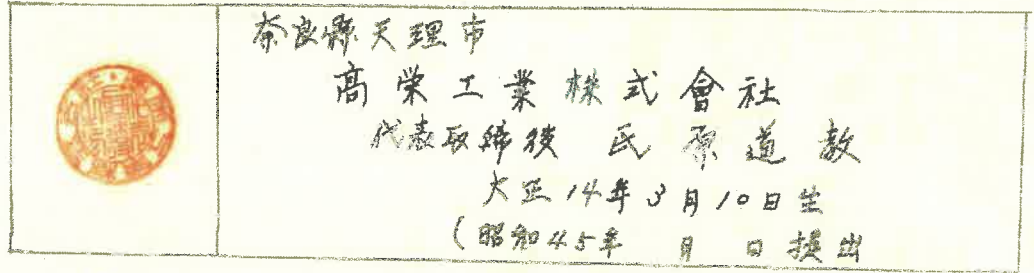 奈良縣天理市
高栄工業株式會社
代表取締役 氏原道教
大正14年3月10日生
(昭和45年 月 日提出